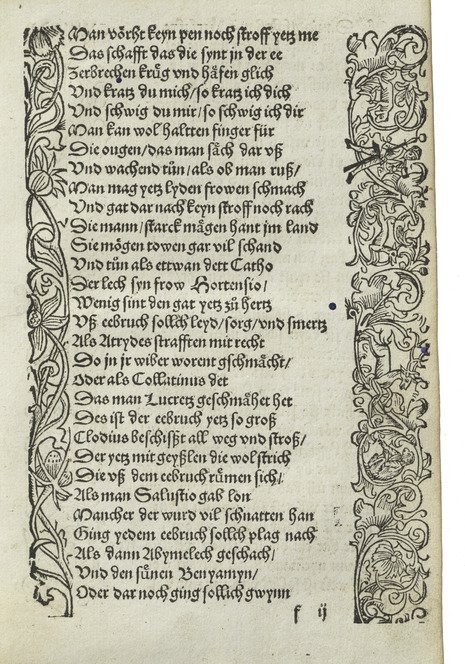 Man voͤrht keyn pen noch stroff yetz me
Das schafft das die synt jn der ee
Zerbrechen kruͤg vnd haͤfen glich
Vnd kratz du mich/so kratz ich dich
Vnd schwig du mir/so schwig ich dir
Man kan wol haltten finger für
Die ougen/das man saͤch dar vß
Vnd wachend tuͤn/als ob man ruß/
Man mag yetz lyden frowen schmach
Vnd gat dar nach keyn stroff noch rach
Die mann/starck maͤgen hant jm land
Sie moͤgen towen gar vil schand
Vnd tuͤn als ettwan dett Catho
Der lech syn frow Hortensio/
Wenig sint den gat yetz zuͤ hertz
Vß eebruch sollich leyd/sorg/vnd smertz
Als Atrydes strafften mit recht
Do jn jr wiber worent gschmaͤcht/
Oder als Collatinus det
Das man Lucretz geschmaͤhet het
Des ist der eebruch yetz so groß
Clodius beschißt all weg vnd stroß/
Der yetz mit geyßlen die wol strich
Die vß dem eebruch ruͤmen sich/
Als man Salustio gab lon
Mancher der wurd vil schnatten han
Ging yedem eebruch sollich plag nach
Als dann Abymelech geschach/
Vnd den suͤnen Benyamyn/
Oder dar noch ging sollich gwynn
f ij